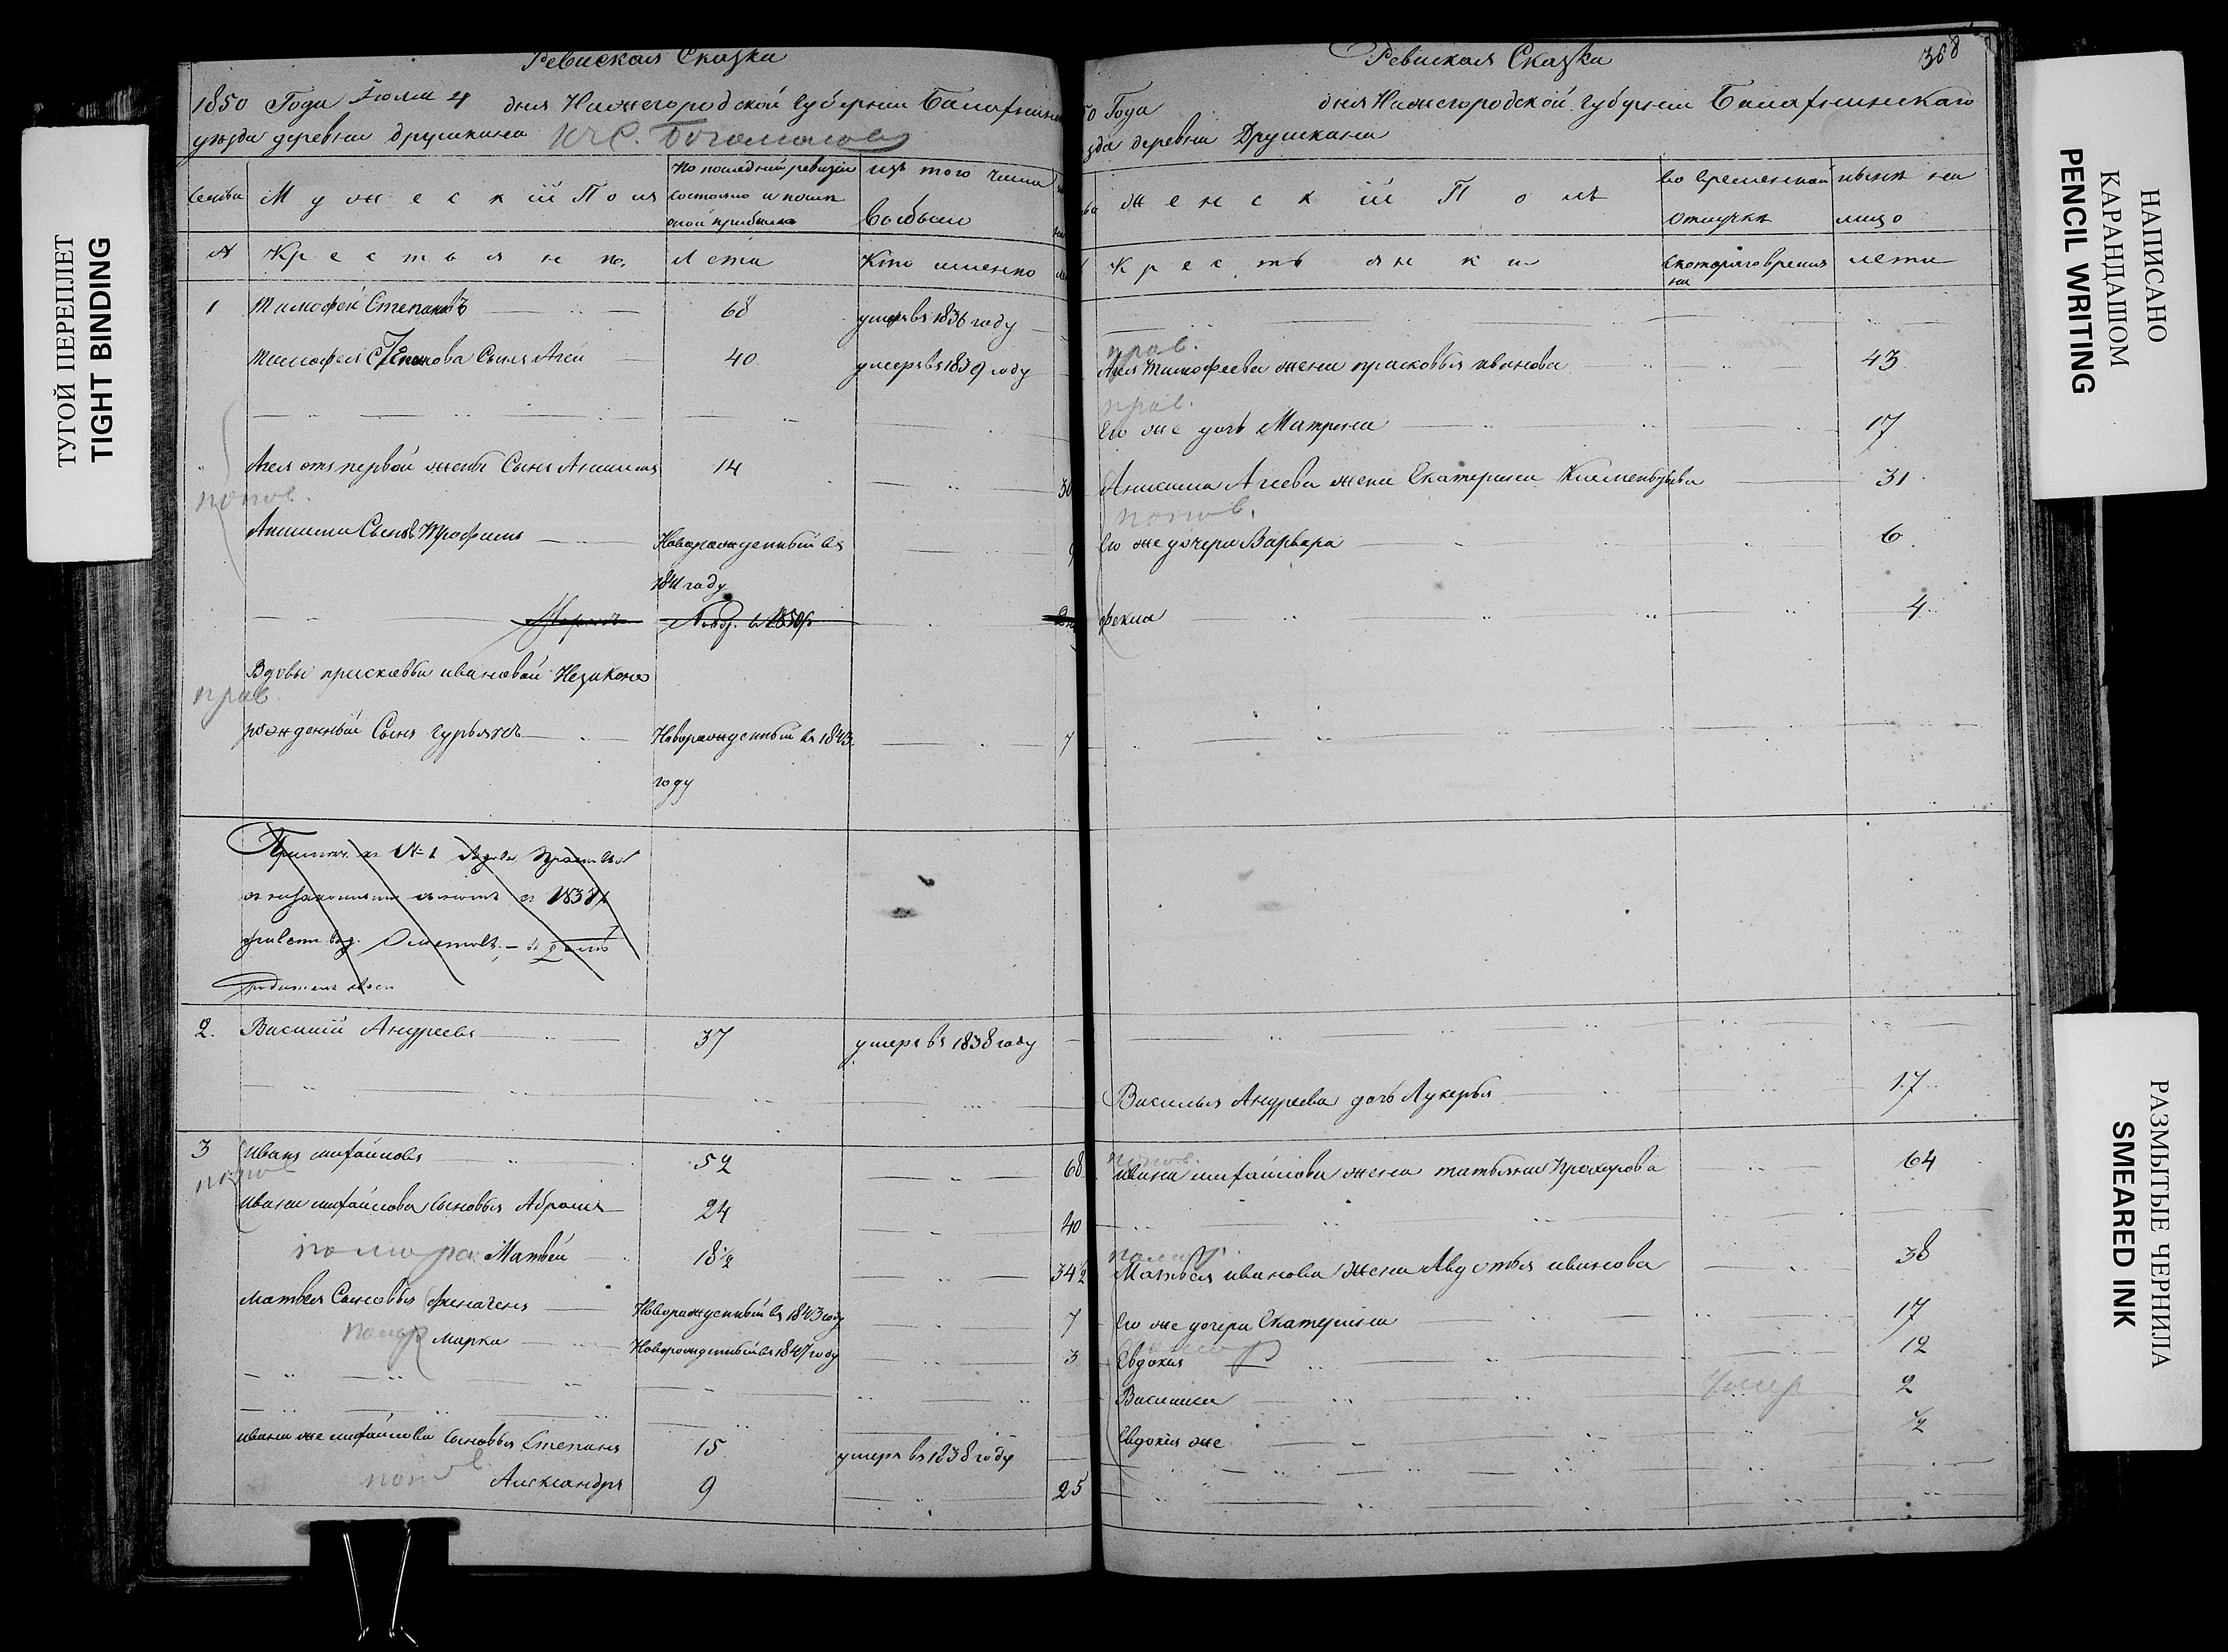 Ревиская Сказка
1850 Года Июля 4 дня Нижегородской Губернии Балахнин
уезда деревни друшкина
Семьи
Мужеский Пол
По последней ревизіи
состояло и после
оной прибыло
изъ того числа
выбыло
№
Крестьян
Лета
Кто именно
1 Тимофей Степановъ 68 умеръ въ 1836 году
Тимофея Степанова Сынъ Агей 40 умеръ въ 1839 году
Агея отъ первой жены Сынъ Анисимъ 14 30
Анисима Сынъ Трофимъ Новорожденный въ
1841 году 9
Вдовы прасковьи ивановой Незаконо
прав
рожденный Сынъ гурьянъ Новорожденный въ 1843 7
году
Примеч. къ № 1
2. Василий Андреевъ 37 умеръ въ 1838 году
3 Иванъ михайловъ 52 68
Ивана михайлова сыновья Абрамъ 24 40
Матвей 18½ 34½
Матвея Сыновья Новорожденный въ 1843 году 7
марка Новорожденный въ 1847 году 3
ивана же михайлова сыновья Степанъ 15 умеръ въ 1838 году
Александръ 9 25
Ревиская Сказка
368
50 Года дня Нижегородской Губернии Балахнинскаго
зда деревни Друшкина
женскій Полъ
во временной
отлучке
ныне на
лицо
Крестьянки
с котораго време
ни
лета
прав.
Агея тимофеева жена прасковья иванова 43
прав.
Его же дочь Матрена 17
Анисима Агеева жена Екатерина Клементьева 31
попов.
Его же дочери Варвара 6
фекла 4
Василья Андреева дочь Лукерья 17
попов.
ивана михайлова жена татьяна Прохорова 64
Матвея иванова жена Авдотья иванова 38
Его же дочери Екатерина 17
Евдокия 12
Василиса умер 2
Евдокия же ½
ТУГОЙ ПЕРЕПЛЕТ
TIGHT BINDING
НАПИСАНО
КАРАНДАШОМ
PENCIL WRITING
РАЗМЫТЫЕ ЧЕРНИЛА
SMEARED INK